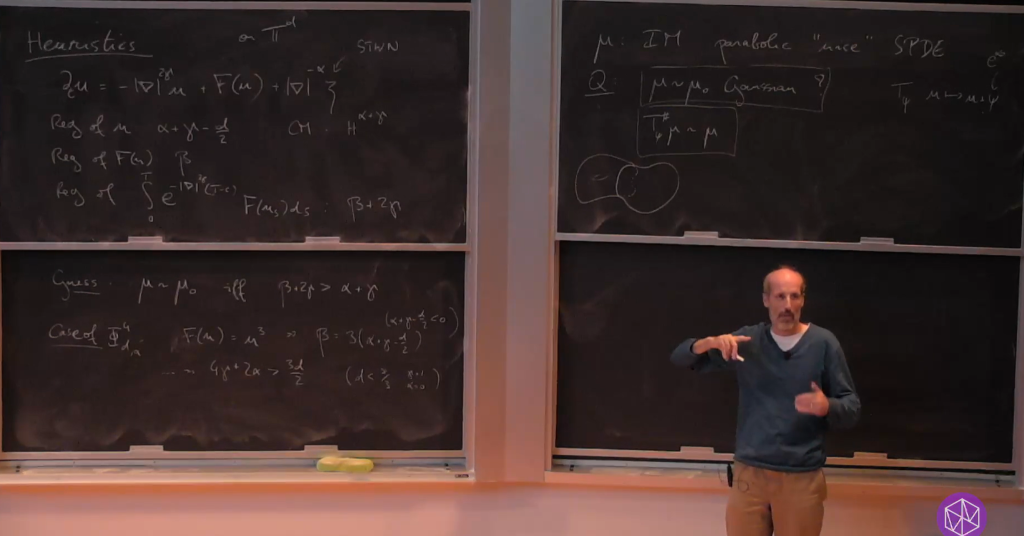 Heuristics on 𝕋^d STWN
∂_t u = -|∇|^{2γ} u + F(u) + |∇|^{-α} ξ
Reg of u α+γ-d/2 CM: H^{α+γ}
Reg of F(u) β
Reg of ∫_0^T e^{-|∇|^{2γ}(T-s)} F(u_s) ds : β+2γ
Guess: μ ~ μ_0 iff β+2γ > α+γ
Case of Φ^4_d: F(u) = u^3 ⇒ β = 3(α+γ-d/2) (α+γ-d/2<0)
... ⇒ 4γ+2α > 3d/2 (γ=1 α=0)
μ: IM parabolic "nice" SPDE
Q: μ~μ_0 Gaussian ?
T_ψ u ↦ u+ψ
T_ψ^* μ ~ μ